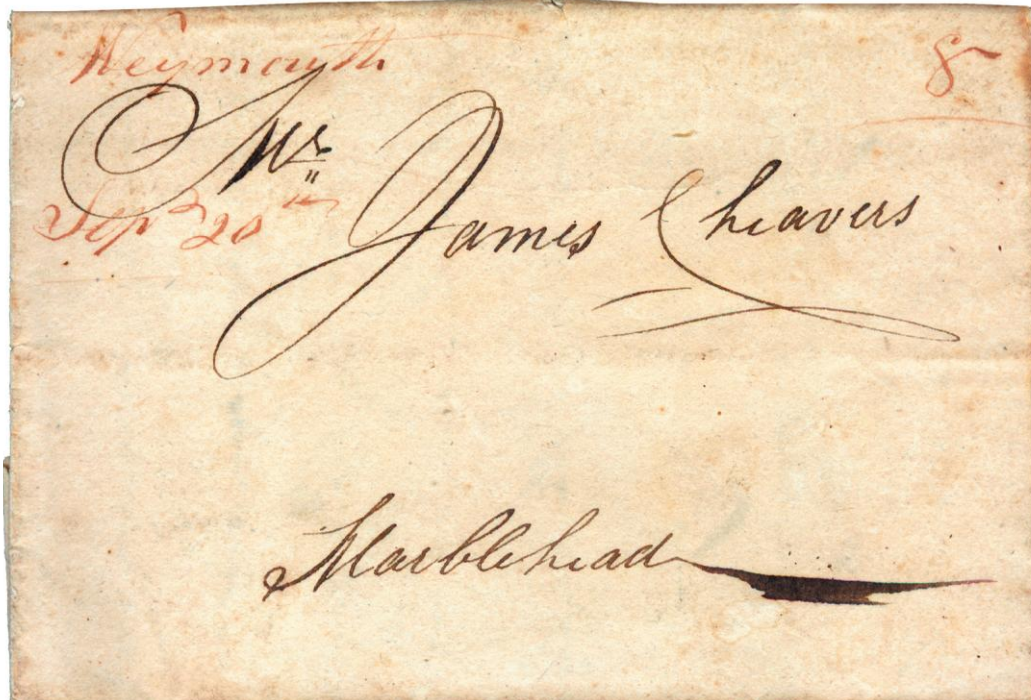 Weymouth 8
Mr.
Sept 20th
James Cheavers
Marblehead